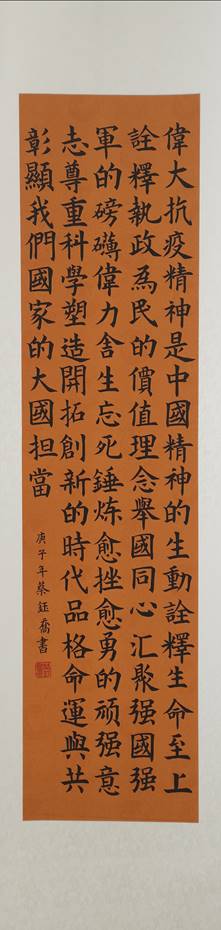 偉大抗疫精神是中國精神的生動詮釋生命至上
詮釋執政為民的價值理念舉國同心汇聚强國强
軍的磅礴偉力舍生忘死錘炼愈挫愈勇的顽强意
志尊重科學塑造開拓創新的時代品格命運與共
彰顯我們國家的大國担當
庚子年蔡鈺喬書